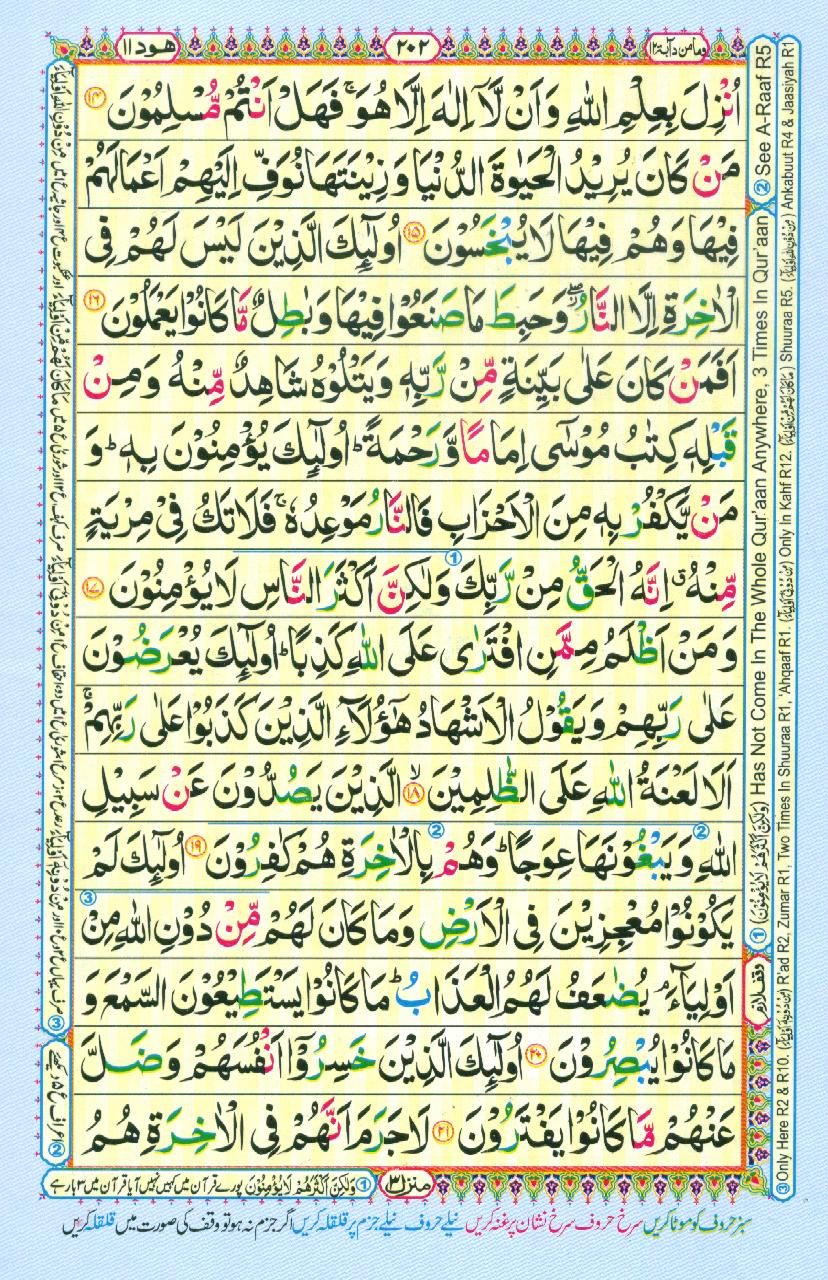 ومامن دآبة ١٢
٢٠٢
هود ١١
اُنْزِلَ بِعِلْمِ اللّٰهِ وَاَنْ لَّاۤ اِلٰهَ اِلَّا هُوَ ۚ فَهَلْ اَنْتُمْ مُّسْلِمُوْنَ ۝۱۴
مَنْ كَانَ يُرِيْدُ الْحَيٰوةَ الدُّنْيَا وَزِيْنَتَهَا نُوَفِّ اِلَيْهِمْ اَعْمَالَهُمْ
فِيْهَا وَهُمْ فِيْهَا لَا يُبْخَسُوْنَ ۝۱۵ اُولٰٓئِكَ الَّذِيْنَ لَيْسَ لَهُمْ فِى
الْاٰخِرَةِ اِلَّا النَّارُ ۖ وَحَبِطَ مَا صَنَعُوْا فِيْهَا وَبٰطِلٌ مَّا كَانُوْا يَعْمَلُوْنَ ۝۱۶
اَفَمَنْ كَانَ عَلٰى بَيِّنَةٍ مِّنْ رَّبِّهٖ وَيَتْلُوْهُ شَاهِدٌ مِّنْهُ وَمِنْ
قَبْلِهٖ كِتٰبُ مُوْسٰٓى اِمَامًا وَّرَحْمَةً ؕ اُولٰٓئِكَ يُؤْمِنُوْنَ بِهٖ ؕ وَ
مَنْ يَّكْفُرْ بِهٖ مِنَ الْاَحْزَابِ فَالنَّارُ مَوْعِدُهٗ ۚ فَلَا تَكُ فِىْ مِرْيَةٍ
مِّنْهُ ۗ اِنَّهُ الْحَقُّ مِنْ رَّبِّكَ وَلٰكِنَّ اَكْثَرَ النَّاسِ لَا يُؤْمِنُوْنَ ۝۱۷
وَمَنْ اَظْلَمُ مِمَّنِ افْتَرٰى عَلَى اللّٰهِ كَذِبًا ؕ اُولٰٓئِكَ يُعْرَضُوْنَ
عَلٰى رَبِّهِمْ وَيَقُوْلُ الْاَشْهَادُ هٰٓؤُلَآءِ الَّذِيْنَ كَذَبُوْا عَلٰى رَبِّهِمْ ۚ
اَلَا لَعْنَةُ اللّٰهِ عَلَى الظّٰلِمِيْنَ ۝۱۸ الَّذِيْنَ يَصُدُّوْنَ عَنْ سَبِيْلِ
اللّٰهِ وَيَبْغُوْنَهَا عِوَجًا ؕ وَهُمْ بِالْاٰخِرَةِ هُمْ كٰفِرُوْنَ ۝۱۹ اُولٰٓئِكَ لَمْ
يَكُوْنُوْا مُعْجِزِيْنَ فِى الْاَرْضِ وَمَا كَانَ لَهُمْ مِّنْ دُوْنِ اللّٰهِ مِنْ
اَوْلِيَآءَ ۘ يُضٰعَفُ لَهُمُ الْعَذَابُ ؕ مَا كَانُوْا يَسْتَطِيْعُوْنَ السَّمْعَ وَ
مَا كَانُوْا يُبْصِرُوْنَ ۝۲۰ اُولٰٓئِكَ الَّذِيْنَ خَسِرُوْٓا اَنْفُسَهُمْ وَضَلَّ
عَنْهُمْ مَّا كَانُوْا يَفْتَرُوْنَ ۝۲۱ لَا جَرَمَ اَنَّهُمْ فِى الْاٰخِرَةِ هُمُ
وقف لازم
منزل ٣
① وَلٰكِنَّ اَكْثَرَهُمْ لَا يُؤْمِنُوْنَ پورے قرآن میں کہیں نہیں آیا قرآن میں ۳ بار ہے
② اعراف ع ۵ دیکھئے
① (وَلٰكِنَّ اَكْثَرَهُمْ لَا يُؤْمِنُوْنَ) Has Not Come In The Whole Qur'aan Anywhere, 3 Times In Qur'aan
② See A-Raaf R5
③ Only Here R2 & R10, (مِنْ دُوْنِهٖۤ اَوْلِيَآءَ) R'ad R2, Zumar R1, Two Times In Shuuraa R1, 'Ahqaaf R1. Only In Kahf R12. Shuuraa R5. (مِنْ دُوْنِ اللّٰهِ اَوْلِيَآءَ) Ankabuut R4 & Jaasiyah R1
سبز حروف کو موٹا کریں سرخ حروف سرخ نشان پر غنہ کریں نیلے حروف نیلے جزم پر قلقلہ کریں اگر جزم نہ ہو تو وقف کی صورت میں قلقلہ کریں